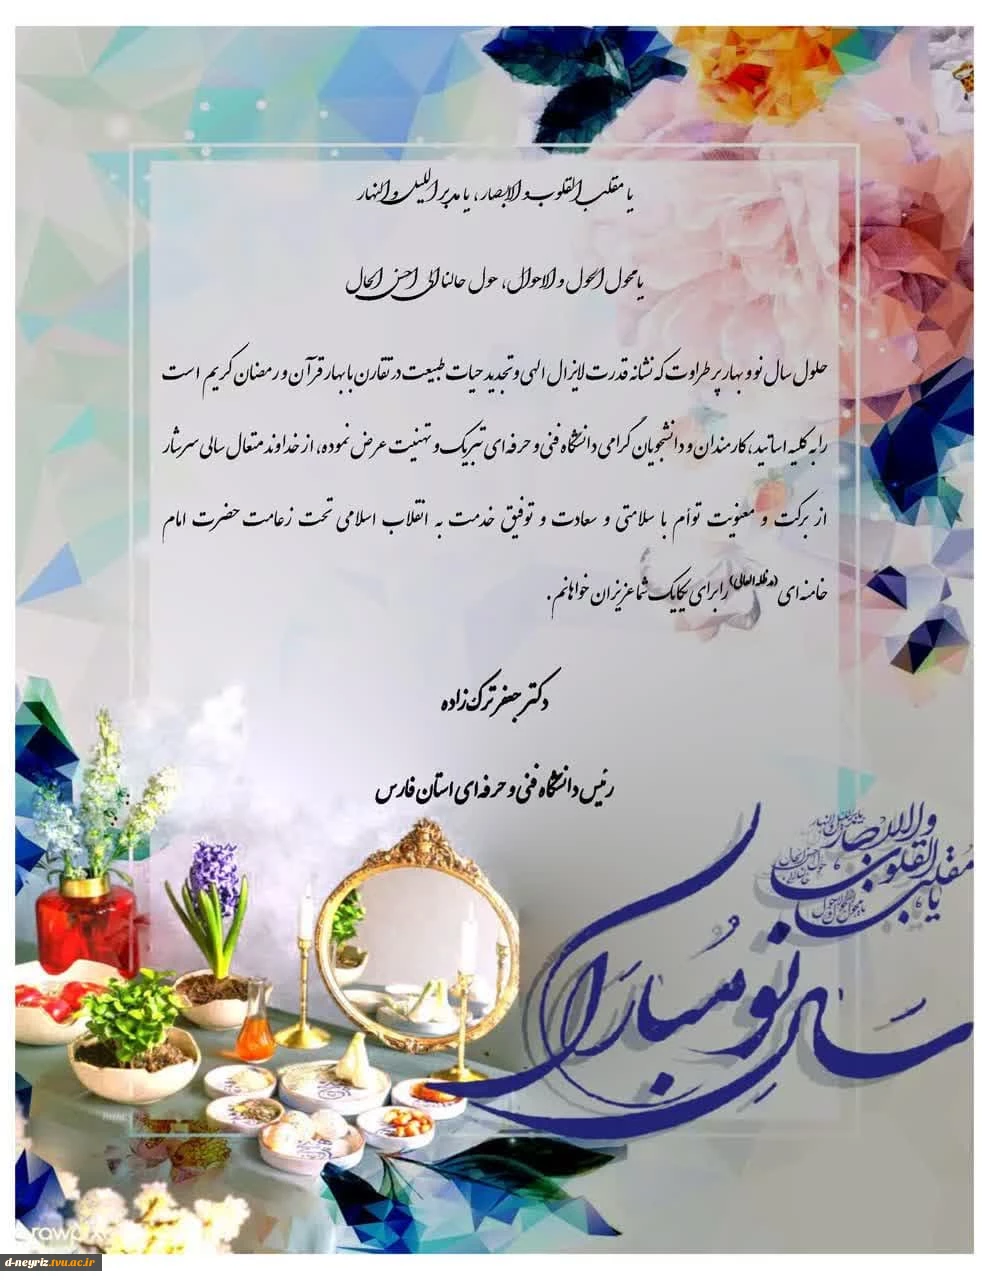 یا مقلب القلوب و الابصار، یا مدبر اللیل و النهار
یا محول الحول و الاحوال، حول حالنا الی احسن الحال
حلول سال نو و بهار پر طراوت که نشانه قدرت لایزال الهی و تجدید حیات طبیعت در تقارن با بهار قرآن و رمضان کریم است
را به کلیه اساتید، کارمندان و دانشجویان گرامی دانشگاه فنی و حرفه ای تبریک و تهنیت عرض نموده، از خداوند متعال سالی سرشار
از برکت و معنویت توأم با سلامتی و سعادت و توفیق خدمت به انقلاب اسلامی تحت زعامت حضرت امام
خامنه ای (مدظله العالی) را برای یکایک شما عزیزان خواهانم.
دکتر جعفر ترک زاده
رئیس دانشگاه فنی و حرفه ای استان فارس
یا مقلب القلوب والابصار
یا مدبر اللیل والنهار
یا محول الحول والاحوال
حول حالنا الی احسن الحال
سال نو مبارک
rawpixel
d-neyriz.tvu.ac.ir